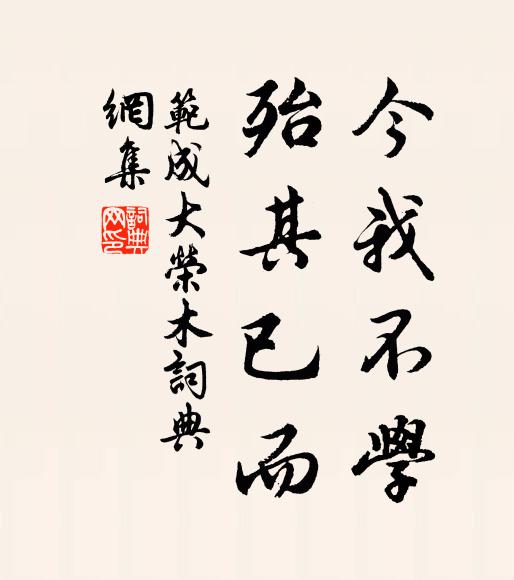 今我不學
殆其已而
範成大榮木詞典
網集
詞典
网印